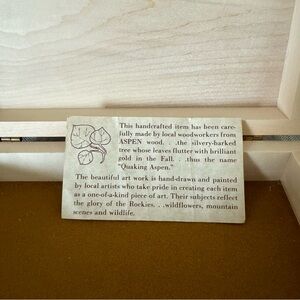 This handcrafted item has been care-
fully made by local woodworkers from
ASPEN wood. . .the silvery-barked
tree whose leaves flutter with brilliant
gold in the Fall. . .thus the name
"Quaking Aspen."
The beautiful art work is hand-drawn and painted
by local artists who take pride in creating each item
as a one-of-a-kind piece of art. Their subjects reflect
the glory of the Rockies. . .wildflowers, mountain
scenes and wildlife.